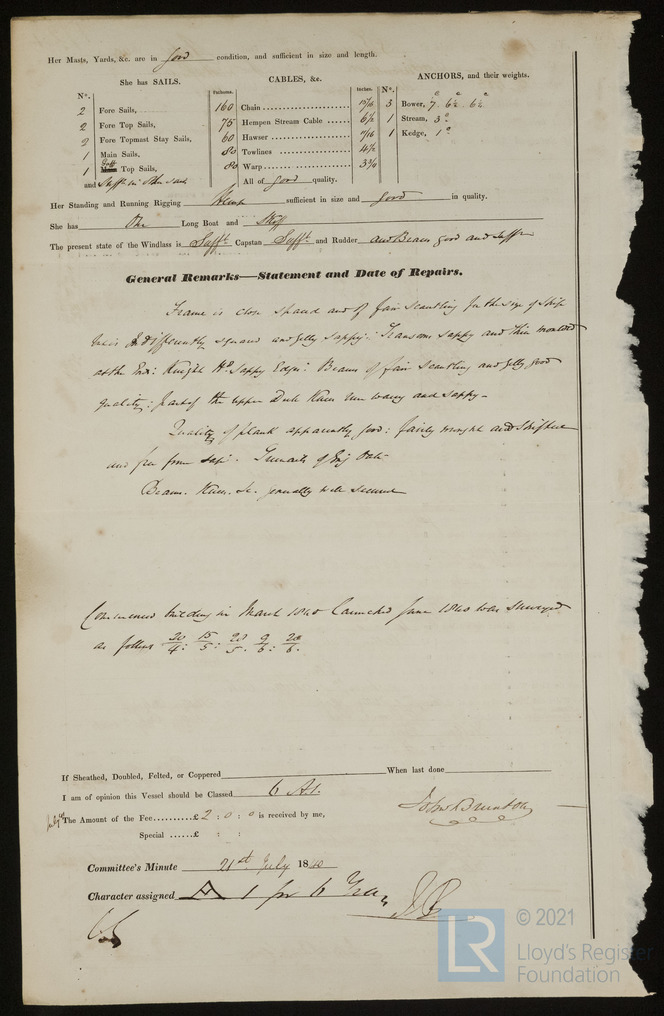 Her Masts, Yards, &c. are in good condition, and sufficient in size and length.
She has SAILS.
N°.
2 Fore Sails,
2 Fore Top Sails,
2 Fore Topmast Stay Sails,
1 Main Sails,
1 Gaff Top Sails,
and Sufft in other sails
CABLES, &c.
Fathoms. Inches.
160 Chain 15/16
75 Hempen Stream Cable 6½
60 Hawser 7/16
80 Towlines 4½
80 Warp 3¾
All of good quality.
ANCHORS, and their weights.
N°.
3 Bower, 7. 6½. 6½
1 Stream, 3
1 Kedge, 1
Her Standing and Running Rigging Hemp sufficient in size and good in quality.
She has One Long Boat and Skiff
The present state of the Windlass is Sufft Capstan Sufft and Rudder and Beams good and Sufft
General Remarks—Statement and Date of Repairs.
Frame is close spaced and of fair scantling for the size of Ship
indifferently squared and sappy: Transoms sappy and thin moulded
at the Ends: Knight Hds sappy Edges: Beams of fair scantling and good
quality: part of the upper Deck Knees waney and sappy -
Quality of plank apparently good: fairly wrought and shifted
and free from sap. Trenails of Eng Oak
Beams. Knees. &c. generally well secured
Commenced building in March 1840 Launched June 1840 was surveyed
as follows 20/4: 15/5: 28/5. 9/6: 20/6.
If Sheathed, Doubled, Felted, or Coppered When last done
I am of opinion this Vessel should be Classed 6 A1.
John Brunton
The Amount of the Fee..........£ 2 : 0 : 0 is received by me,
Special ......£ : :
Committee's Minute 21st July 1840
Character assigned A 1 for 6 Years
LR
© 2021
Lloyd's Register
Foundation